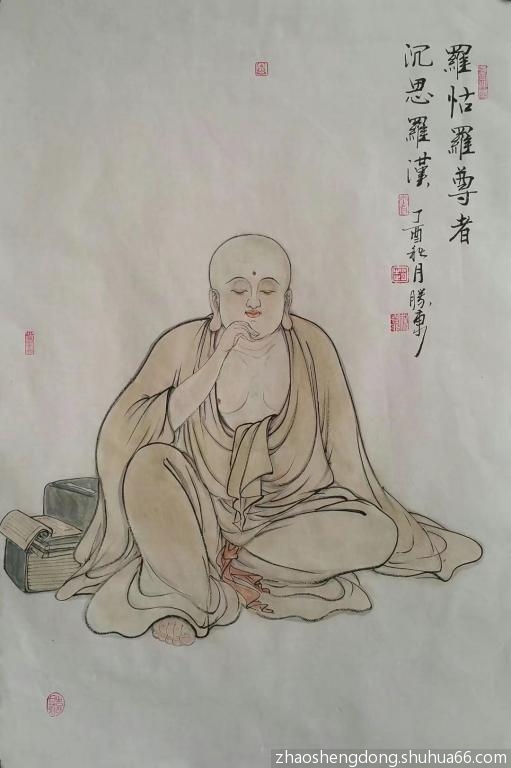 羅怙羅尊者
沉思羅漢
丁酉秋月勝東
zhaoshengdong.shuhua66.com